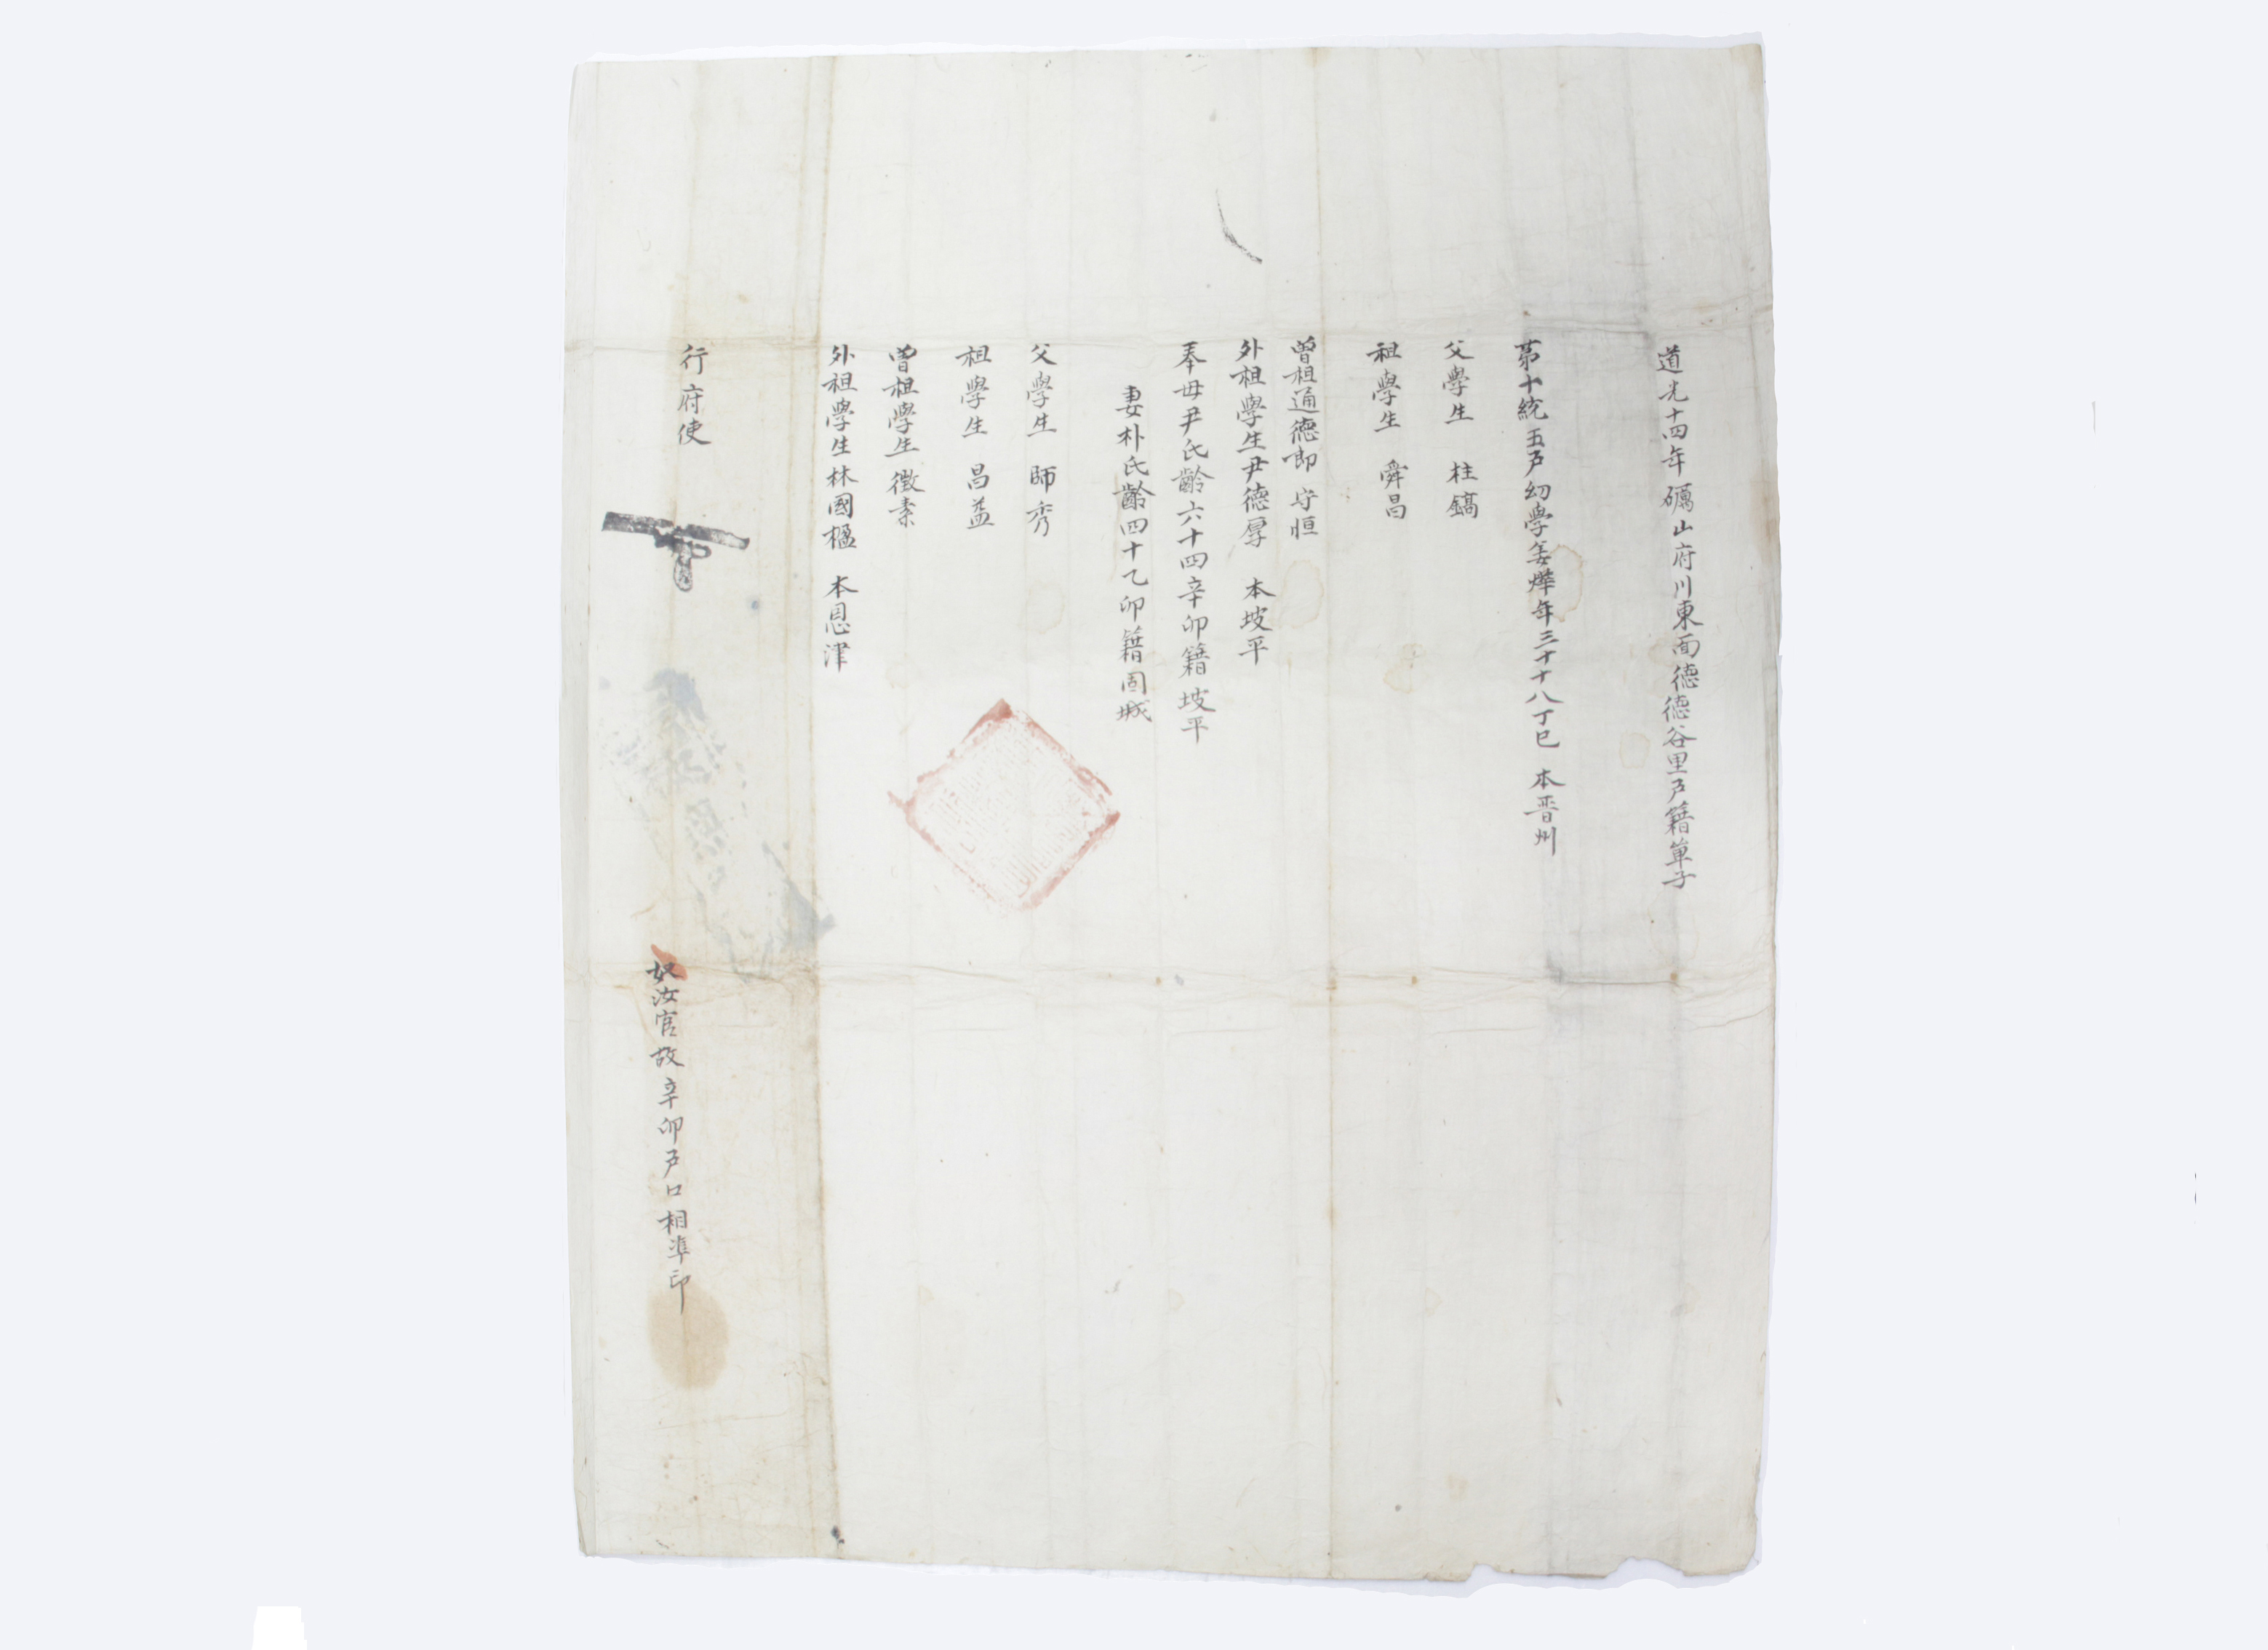 道光十四年礪山府川東面德德谷里戶籍單子
第十統五戶幼學姜爗年三十十八丁巳 本晋州
父學生 柱鎬
祖學生 舜昌
曾祖通德郎 守恒
外祖學生尹德厚 本坡平
奉母尹氏齡六十四辛卯籍坡平
妻朴氏齡四十乙卯籍固城
父學生 師秀
祖學生 昌益
曾祖學生徵素
外祖學生林國楹 本恩津
行府使
奴汝官故 辛卯戶口相準印